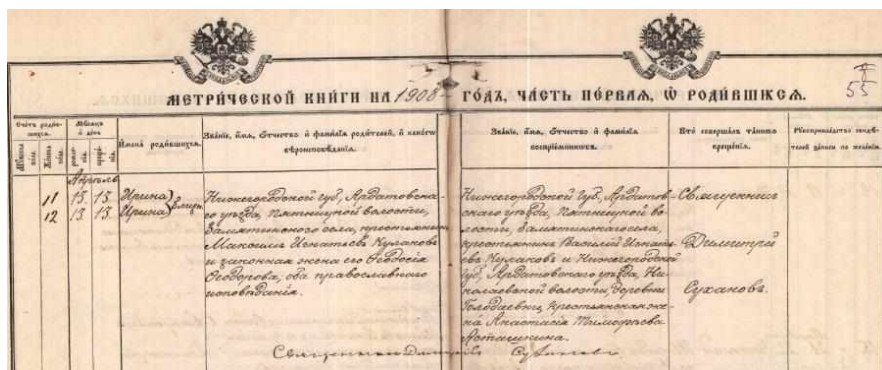 МЕТРИ́ЧЕСКОЙ КНИ́ГИ НА 1908 ГО́ДЪ, ЧА́СТЬ ПЕ́РВАЯ, Ѡ РОДИ́ВШИХСЯ.
55
Счётъ родив-
шихся.
Мѣсяцъ
и день
Имена родившихся.
Званіе, имя, отчество и фамилія родителей, и какого
вѣроисповѣданія.
Званіе, имя, отчество и фамилія
воспріемниковъ.
Кто совершалъ таинство
крещенія.
Рукоприкладство свидѣ-
телей записи по желанію.
Апрѣль
11 13. 13. Ирина
12 13 13. Ирина
Нижегородской губ., Ардатовска-
го уѣзда, Пятницкой волости,
Замятинского села, крестьянинъ
Максимъ Игнатьевъ Кулаковъ
и законная жена его Ѳеодосія
Ѳеодорова, оба православнаго
исповѣданія.
Нижегородской губ., Ардатов-
скаго уѣзда, Пятницкой во-
лости, Замятинскаго села,
крестьянинъ Василій Игнать-
евъ Кулаковъ и Нижегородской
губ., Ардатовскаго уѣзда, Ни-
колаевской волости, деревни
крестьянская же-
на Анастасія Тимофеева
Асташкина.
Священникъ
Димитрій
Сухановъ.
Священникъ Димитрій Сухановъ